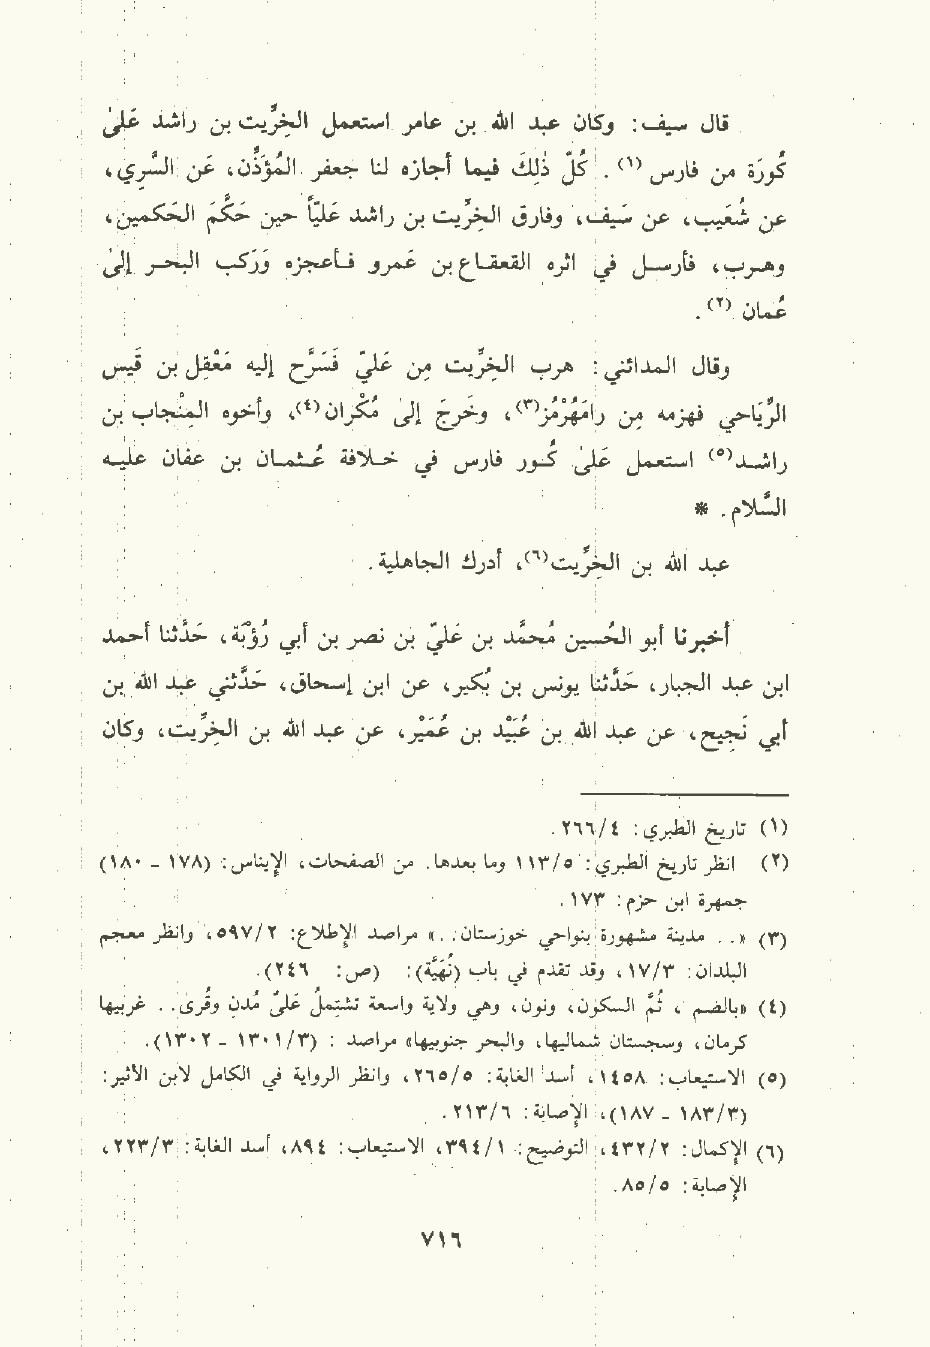 قال سيف: وكان عبد الله بن عامر استعمل الخِرِّيت بن راشد عَلىٰ
كُورَة من فارس (١). كُلّ ذٰلِكَ فيما أجازه لنا جعفر المُؤذِّن، عَن السَّري،
عن شُعَيب، عن سَيف، وفارق الخِرِّيت بن راشد عَليّاً حين حَكَّمَ الحَكمين،
وهرب، فأرسل في اثره القعقاع بن عَمرو فأعجزه وَرَكب البحر إلىٰ
عُمان (٢).
وقال المدائني: هرب الخِرِّيت مِن عَليّ فَسَرَّح إليه مَعْقِل بن قَيس
الرِّيَاحي فهزمه مِن رامَهُرْمُز(٣)، وخرجَ إلىٰ مُكْران(٤)، وأخوه المِنْجاب بن
راشد(٥) استعمل عَلىٰ كُور فارس في خلافة عُثمان بن عفان عليه
السَّلام. *
عبد الله بن الخِرِّيت(٦)، أدرك الجاهلية.
أخبرنا أبو الحُسين مُحمَّد بن عَليّ بن نصر بن أبي رُؤْبَة، حَدَّثنا أحمد
ابن عبد الجبار، حَدَّثنا يونس بن بُكير، عن ابن إسحاق، حَدَّثني عبد الله بن
أبي نَجِيح، عن عبد الله بن عُبَيْد بن عُمَيْر، عن عبد الله بن الخِرِّيت، وكان
(١) تاريخ الطبري: ٤/٢٦٦.
(٢) انظر تاريخ الطبري: ٥/١١٣ وما بعدها. من الصفحات، الإيناس: (١٧٨ - ١٨٠)
جمهرة ابن حزم: ١٧٣.
(٣) «.. مدينة مشهورة بنواحي خوزستان..» مراصد الإطلاع: ٢/٥٩٧، وانظر معجم
البلدان: ٣/١٧، وقد تقدم في باب (نَهْيَة): (ص: ٢٤٦).
(٤) «بالضم ، ثُمّ السكون، ونون، وهي ولاية واسعة تشتملُ عَلىٰ مُدن وقُرى.. غربيها
كرمان، وسجستان شماليها، والبحر جنوبيها» مراصد : (٣/١٣٠١ - ١٣٠٢).
(٥) الاستيعاب: ١٤٥٨، أسد الغابة: ٥/٢٦٥، وانظر الرواية في الكامل لابن الأثير:
(٣/١٨٣ - ١٨٧)، الإصابة: ٦/٢١٣.
(٦) الإكمال: ٢/٤٣٢، التوضيح: ١/٣٩٤، الاستيعاب: ٨٩٤، أسد الغابة: ٣/٢٢٣،
الإصابة: ٥/٨٥.
٧١٦